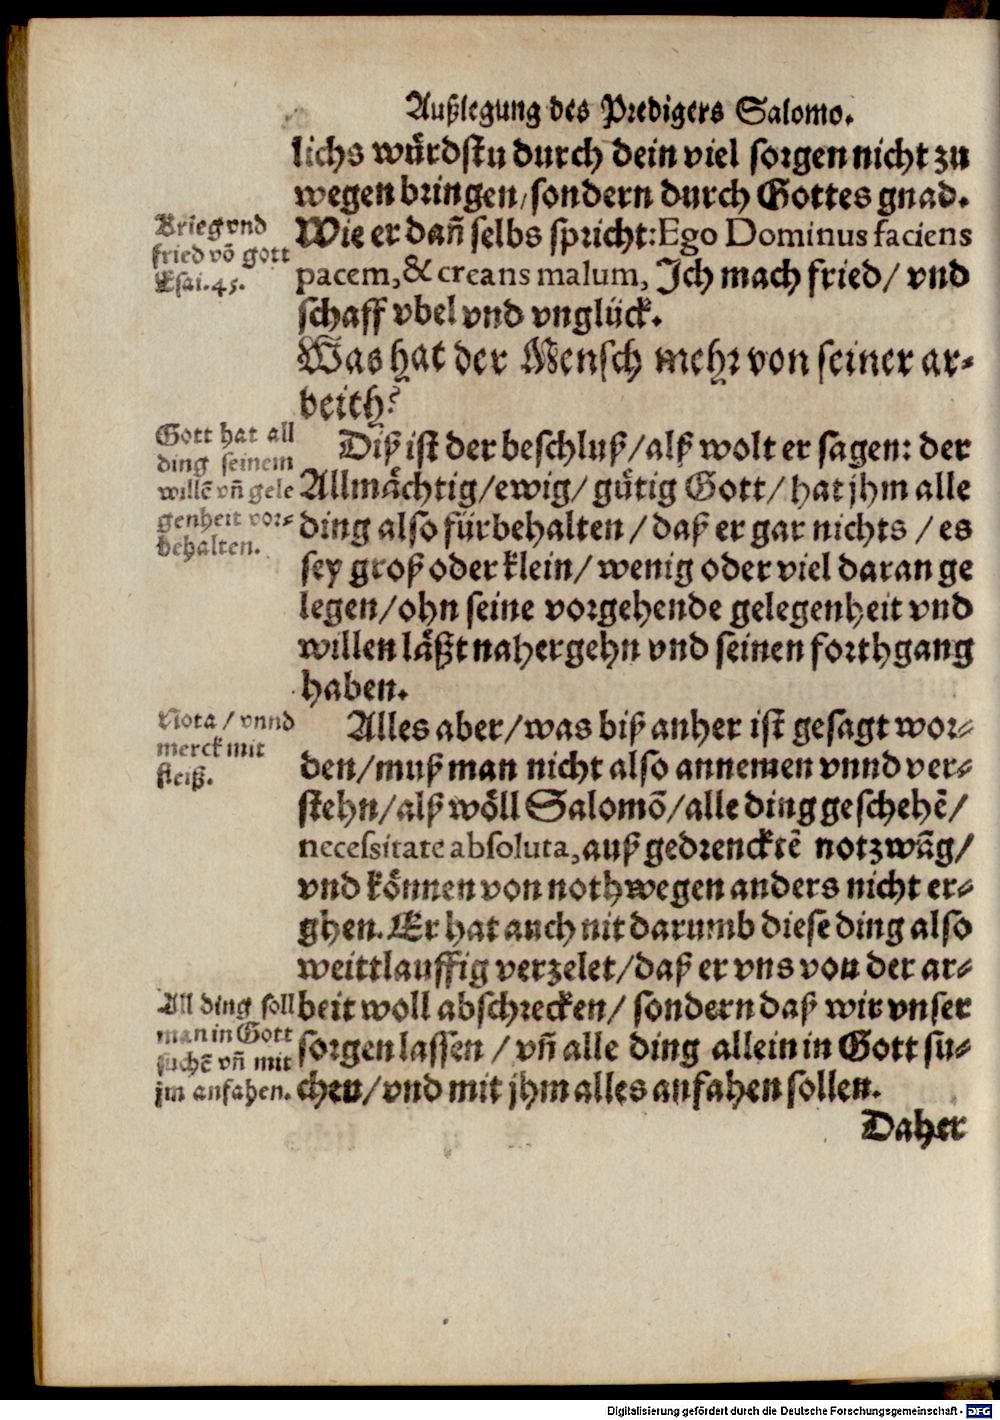 Außlegung des Predigers Salomo.
lichs wuͤrdstu durch dein viel sorgen nicht zu
wegen bringen/sondern durch Gottes gnad.
Wie er dañ selbs spricht: Ego Dominus faciens
pacem, & creans malum, Jch mach fried/ vnd
schaff vbel vnd vnglück.
Krieg vnd
fried võ gott
Esai. 45.
Was hat der Mensch mehr von seiner ar-
beith?
Diß ist der beschluß/alß wolt er sagen: der
Allmaͤchtig/ewig/ guͤtig Gott/ hat jhm alle
ding also fürbehalten/ daß er gar nichts / es
sey groß oder klein/ wenig oder viel daran ge
legen/ohn seine vorgehende gelegenheit vnd
willen laͤßt nahergehn vnd seinen forthgang
haben.
Gott hat all
ding seinem
willẽ vñ gele
genheit vor-
behalten.
Alles aber/was biß anher ist gesagt wor-
den/muß man nicht also annemen vnnd ver-
stehn/alß woͤll Salomõ/alle ding geschehẽ/
necessitate absoluta, auß gedrencktẽ notzwãg/
vnd koͤnnen von nothwegen anders nicht er-
ghen. Er hat auch nit darumb diese ding also
weittlauffig verzelet/daß er vns von der ar-
beit woll abschrecken/ sondern daß wir vnser
sorgen lassen / vñ alle ding allein in Gott su-
chen/vnd mit jhm alles anfahen sollen.
Nota / vnnd
merck mit
fleiß.
All ding soll
man in Gott
suchẽ vñ mit
jm anfahen.
Daher
Digitalisierung gefördert durch die Deutsche Forschungsgemeinschaft - DFG